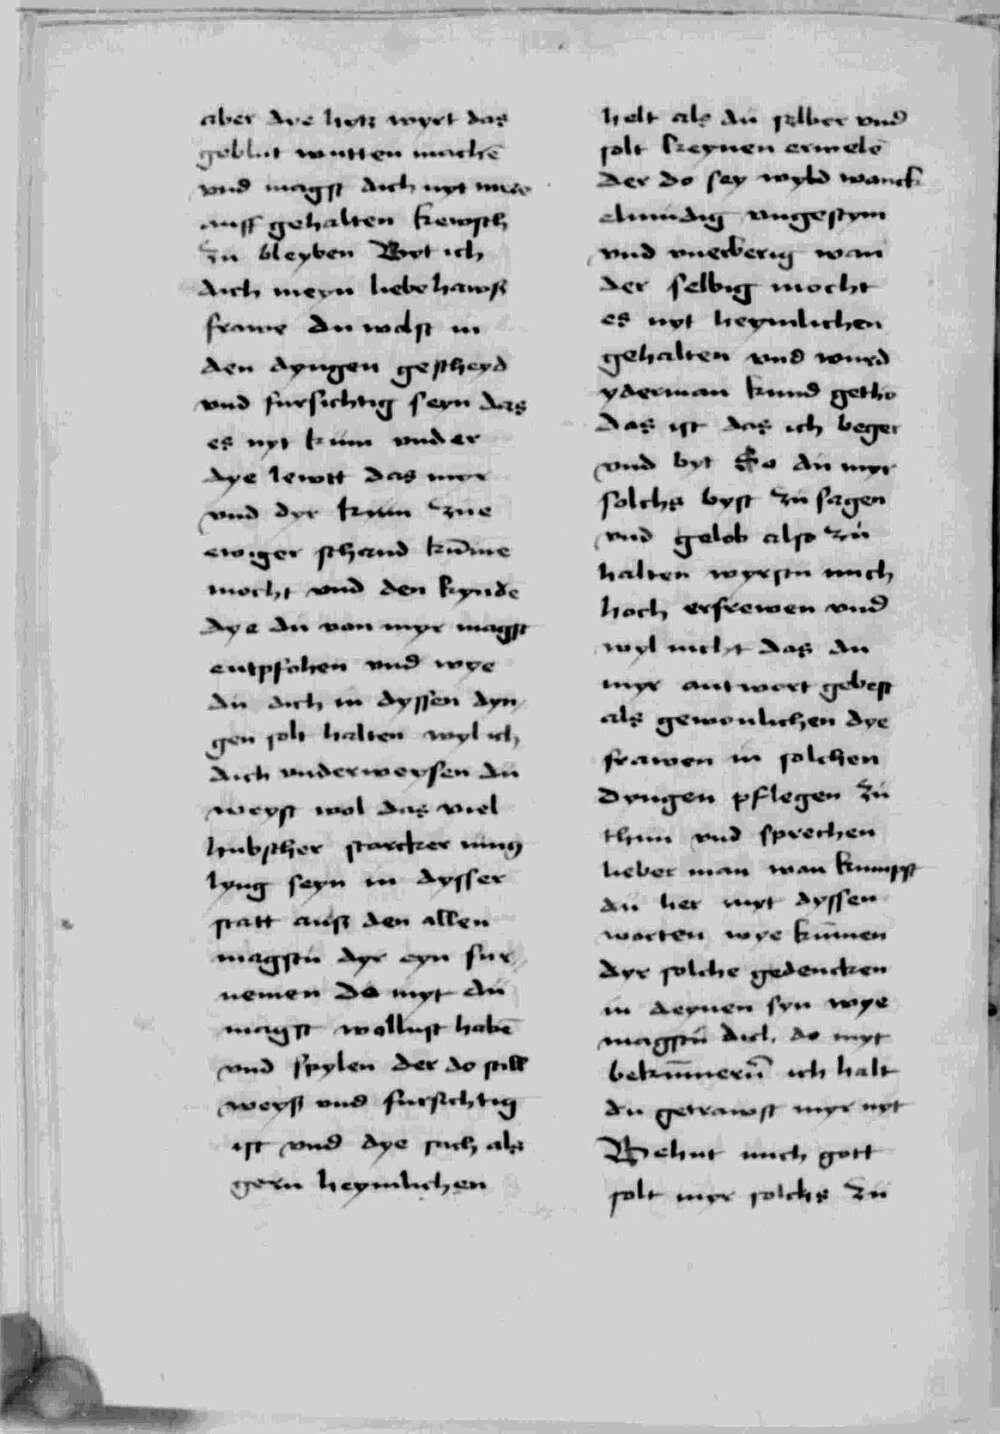 aber dye hytz wyrt das
geblut wutten machē
vnd magst dich nyt mee
auff gehalten kewsch
zu bleyben Byt ich
dich meyn liebe hawß
frawe du wolst in
den dyngen gescheyd
vnd fursichtig seyn das
es nyt kum vnder
dye lewtt das myr
vnd dyr kum zue
ewiger schand kūme
mocht vnd den kynde
dye du von myr magst
entpfohen vnd wye
du dich in dyssen dyn
gen solt halten wyl ich
dich vnderweysen du
weyst wol das viel
hubscher starcker iung
lyng seyn in dysser
statt auß den allen
magstu dyr eyn fur
nemen do myt du
magst wollust habē
vnd spylen der do still
weyß vnd fursichtig
ist vnd dye sach als
gern heymlichen
helt als du selber vnd
solt keynen erwelē
der do sey wyld wanck
elmudig vngestym
vnd vnerberig wan
der selbig mocht
es nyt heymlichen
gehalten vnd wurd
yderman kund getho
das ist das ich beger
vnd byt So du myr
solchs byst zu sagen
vnd gelob also zu
halten wyrstu mich
hoch erfrewen vnd
wyl nicht das du
myr antwort gebest
als gewonlichen dye
frawen in solchen
dyngen pflegen zu
thun vnd sprechen
lieber man wan kumpst
du her myt dyssen
worten wye kūmen
dyr solche gedencken
in deynen syn wye
magstu dich do myt
bekūmerū ich halt
du getrawst myr nyt
Behut mich gott
solt myr solchs zu